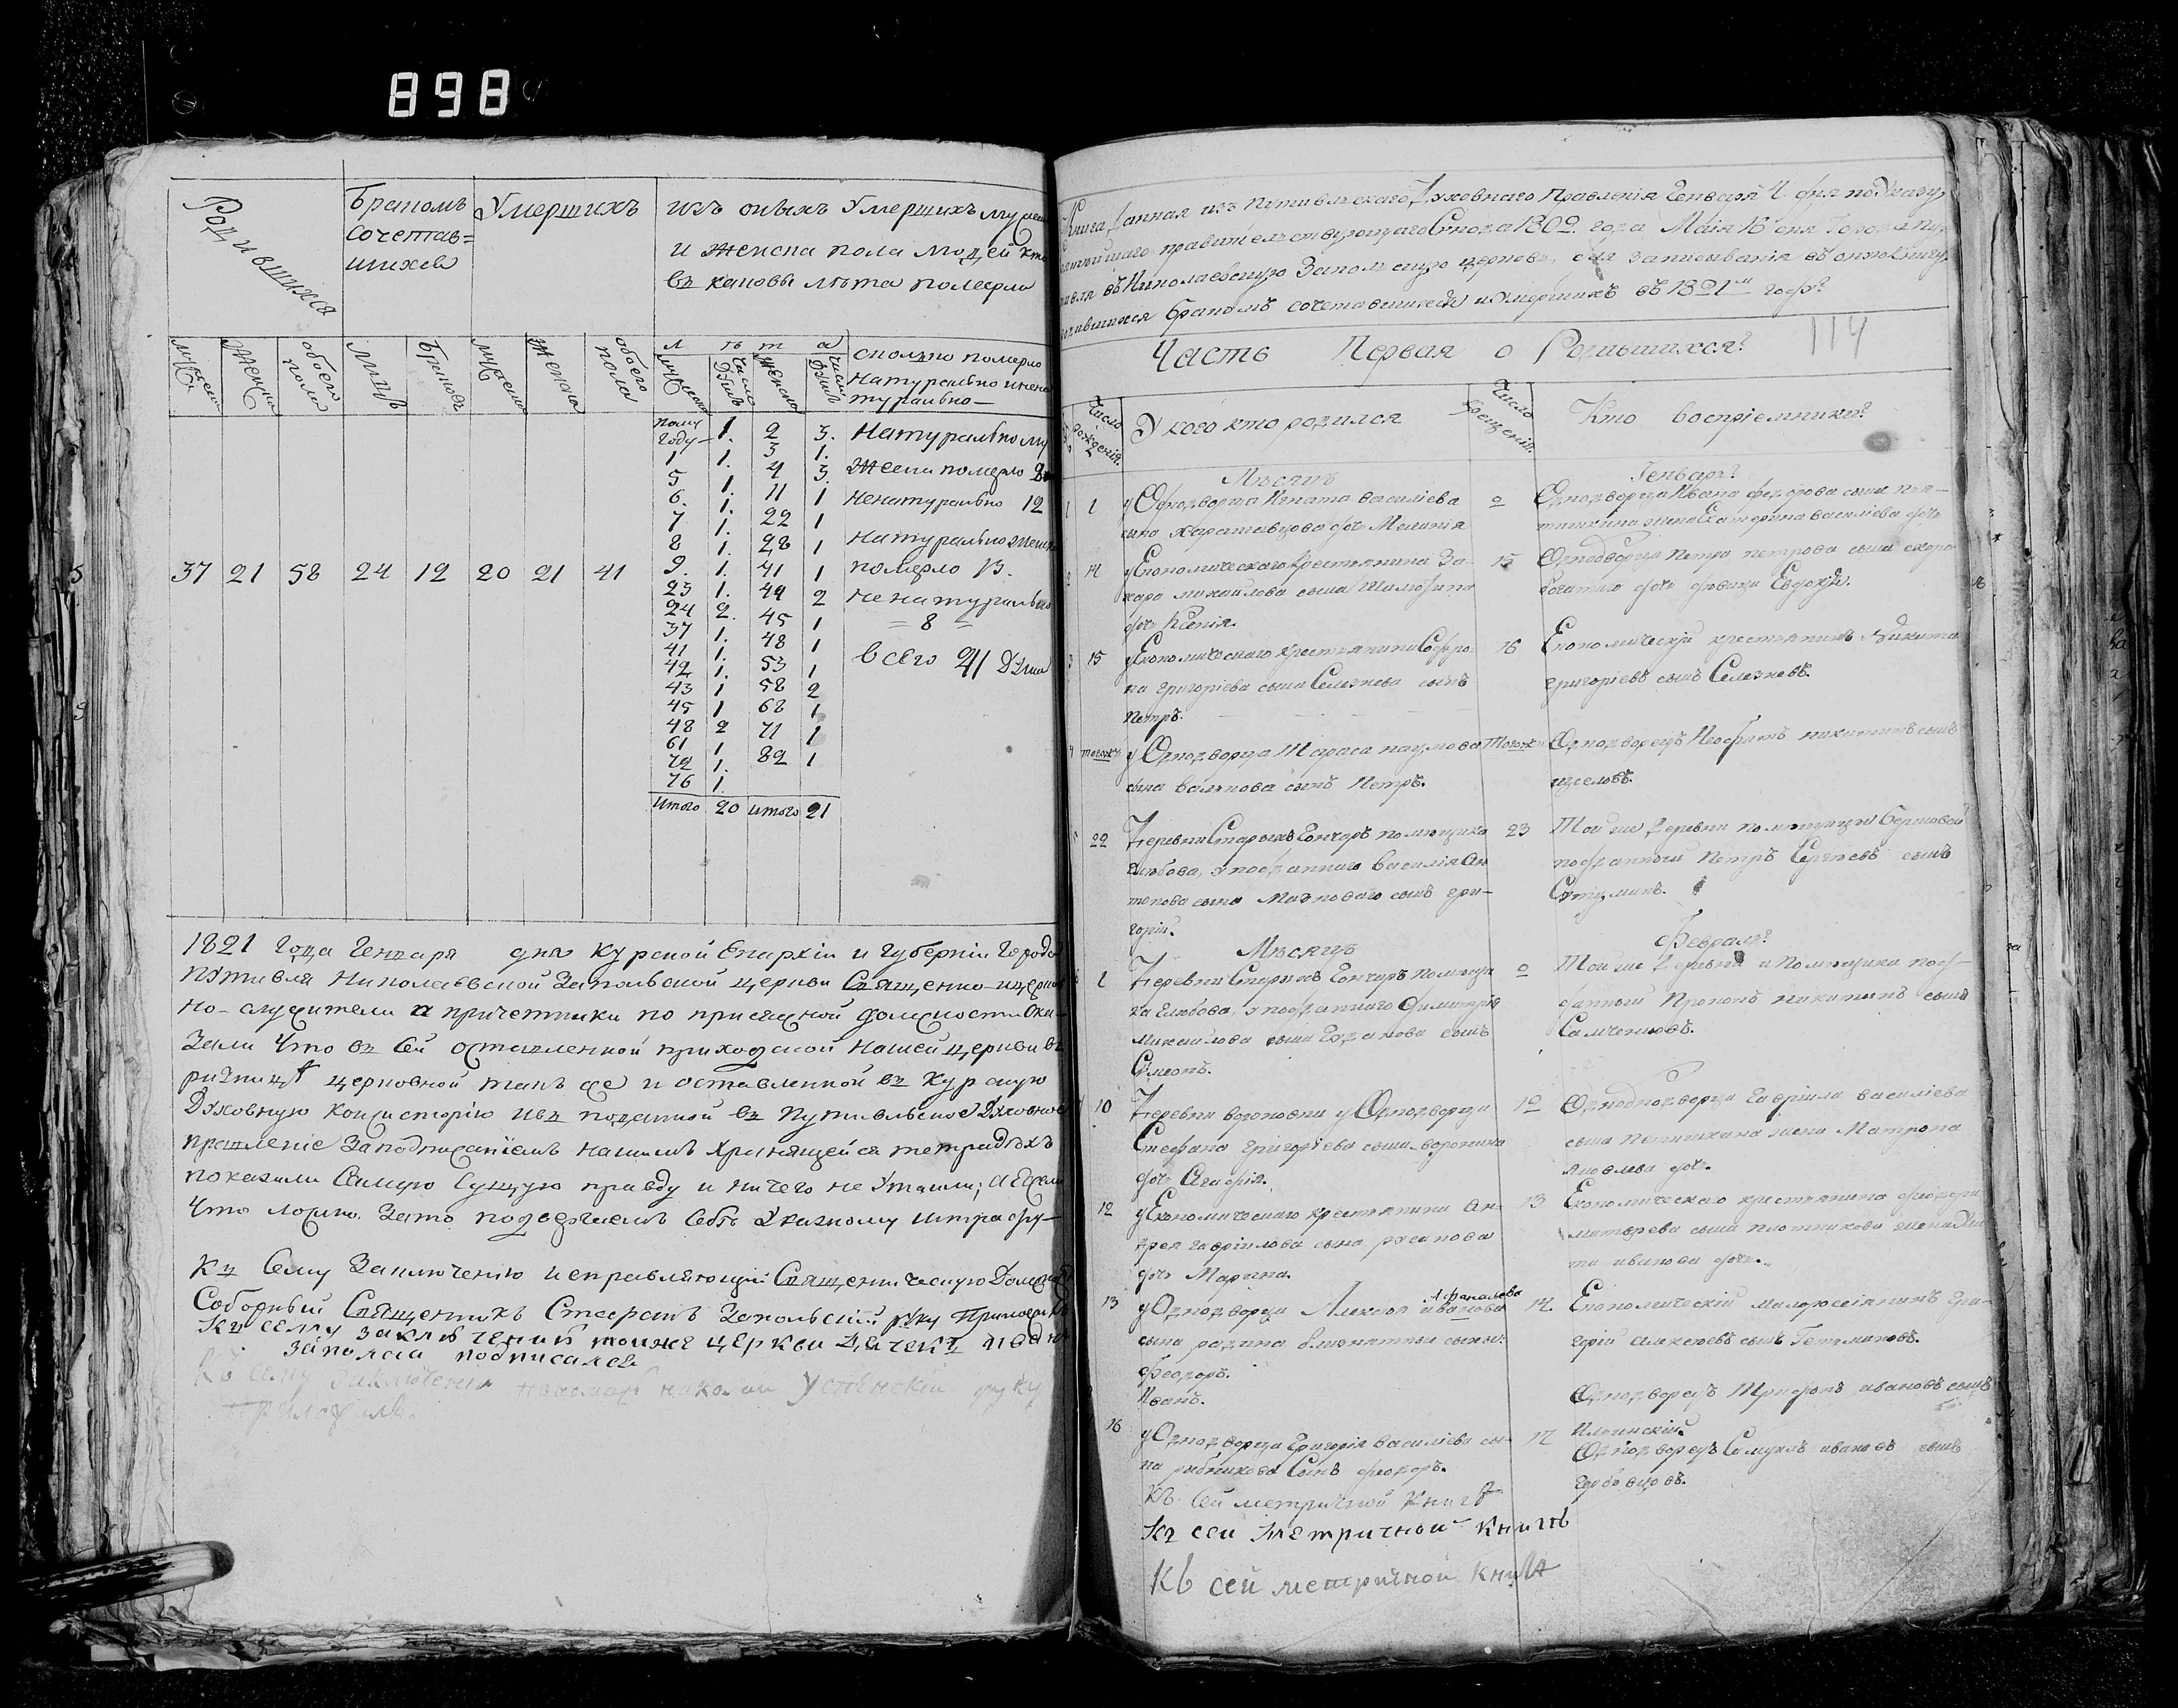 898
Родившихся
Бракомъ
сочетав=
шихся
Умершихъ
изъ оныхъ Умершихъ мужеск
и женска пола людей кто
въ каковы лѣта померли
мужеска
Женска
обоего пола
лицъ
Браковъ
мужеска
женска
обоего пола
лѣта
мужеска
Число Душъ
женска
Число Душъ
сколько померло
натурально и нена
турально—
полу году— 1. 2 3.
1 1. 3 1.
5 1. 4 3.
6. 1. 11 1
7 1. 22 1
8 1. 28 1
9. 1. 41 1
23 1. 44 2
24 2. 45 1
37 1. 48 1
41 1. 53 1
42 1. 58 2
43 1 68 1
45 1 71 1
48 2 82 1
61 1
72 1.
76 1.
Итого 20 итого 21
Натурально му
Жески померло 8
Ненатурально 12
Натурально женск
померло 13.
ненатурально
= 8 =
всего 41 Душа
37 21 58 24 12 20 21 41
1821 Года Генваря дня Курской Епархіи и Губерніи Города
Путивля Николаевской Запольской церкви Священно-церков
но-служители и причетники по присяжной должности ока
зали что въ сей оставленной приходской нашей церкви въ
ризницѣ церковной такъ же и оставленной въ Курскую
Духовную Консисторію и въ поданной въ Путивльское Духовное
правленіе за подписаніемъ нашимъ хранящейся тетрадѣхъ
показали самую сущую правду и ничего не утаили; а Ежели
что ложно. Зато подвергаемъ себѣ Указному штрафу—
Къ сему Заключенію исправляющій Священническую Должност
Соборный Священникъ Стефанъ Запольскій руку Приложилъ
Къ сему заключению тоижъ церкви Дячекъ
Заполскй подписалса
Къ сему заключению пономарь николаи Успенскій руку
приложилъ.
Книга данная изъ Путивльскаго Духовнаго Правленія Генваря 4 дня по Указу
правительствующаго Сѵнода 1802 года Маія 16 дня Города Пу
тивля въ Николаевскую Запольскую церковь, для записыванія въ оную книгу
родившихся бракомъ сочетавшихся и Умершихъ въ 1821м годѣ
114
Часть Первая о Родившихся?
Число рожденія.
У кого кто родился
Число крещенія.
Кто воспріемники?
Мѣсяцъ
Генварь?
1 1 у Однодворца Игната василіева
сына Харатавцова дочь Меланія
2 Однодворца Ивана федорова сына пля—
шкина жена Екатерина василіева дочь
2 14 у Економическаго крестьянина За-
хара михайлова сына Шилюгина
дочь Ксенія.
15 Однодворца петра петрова сына скоро
богатаго дочь девица Евдокія.
3 15 у Економическаго крестьянина Софро-
на григоріева сына Селезнева сынъ
Петръ.
16 Економическій крестьянинъ Никита
григоріевъ сынъ Селезневъ.
4 тогожъ у Однодворца Тараса наумова
сына волькова сынъ Петръ.
Тогожъ Однодворецъ Неофитъ никитинъ сынъ
щеловъ.
5 22 Деревни Старыхъ Гончаръ помещика
Глюбова, у подданнаго василія Ан
тонова сына Мачноваго сынъ гри—
горій.
23 Той же Деревни помещицы Берновой
подданный Петръ Сергѣевъ сынъ
Мѣсяцъ
Февраль?
1 Деревни Старыхъ Гончаръ помещи
ка Глюбова, у подданнаго димитрія
михайлова сына сынъ
Симеонъ.
2 Той же Деревни и Помещика под—
данный Прокопъ никитинъ сынъ
Самченковъ.
10 Деревни вороновки у Однодворца
Стефана григоріева сына воронина
дочь Агафія.
12 Однодворца Гавріила василіева
сына Плешкина жена Матрона
яковлева дочь.
12 у Економическаго крестьянина Ан-
дрея гавріилова сына русанова
дочь Марина.
13 Економическаго крестьянина феодора
матвеева сына плотникова жена
иванова дочь.
13 у Однодворца Алексея Афанасьева ивановы
сына радина близнятныи сыны:
Феодоръ.
Иванъ.
14. Економическій малороссіянинъ Гри-
горій алексѣевъ сынъ Гетмановъ.
Однодворецъ Трифонъ ивановъ сынъ
Ильинскій.
16 у Однодворца Григорія василіева сы-
на рыбникова Сынъ феодоръ.
17 Однодворецъ Самуилъ ивановъ сынъ
горбовцовъ.
Къ сей метричной Книгѣ
Къ сеи метричнои Книгѣ
Къ сеи метричной Книгѣ